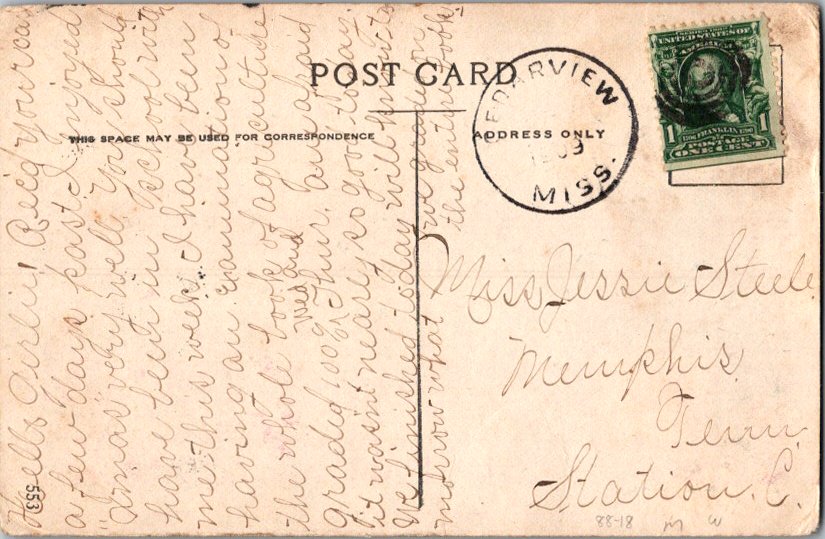 POST CARD
THIS SPACE MAY BE USED FOR CORRESPONDENCE
ADDRESS ONLY
CEDARVIEW
1909
MISS.
UNITED STATES OF
AMERICA
1 FRANKLIN 1
POSTAGE
ONE CENT
Hello Girlie! Rec'd your card
a few days past. I enjoyed
Xmas very well. You should
have been in school with
me this week. I have been
having an examination of
the whole book of agriculture
Wed and
graded 100% Thur. but afraid
it wasn't nearly so good today.
We finished today will know to
morrow what we grade on
the entire book.
Miss Jessie Steele
Memphis
Tenn.
Station C.
553
88-18 M W